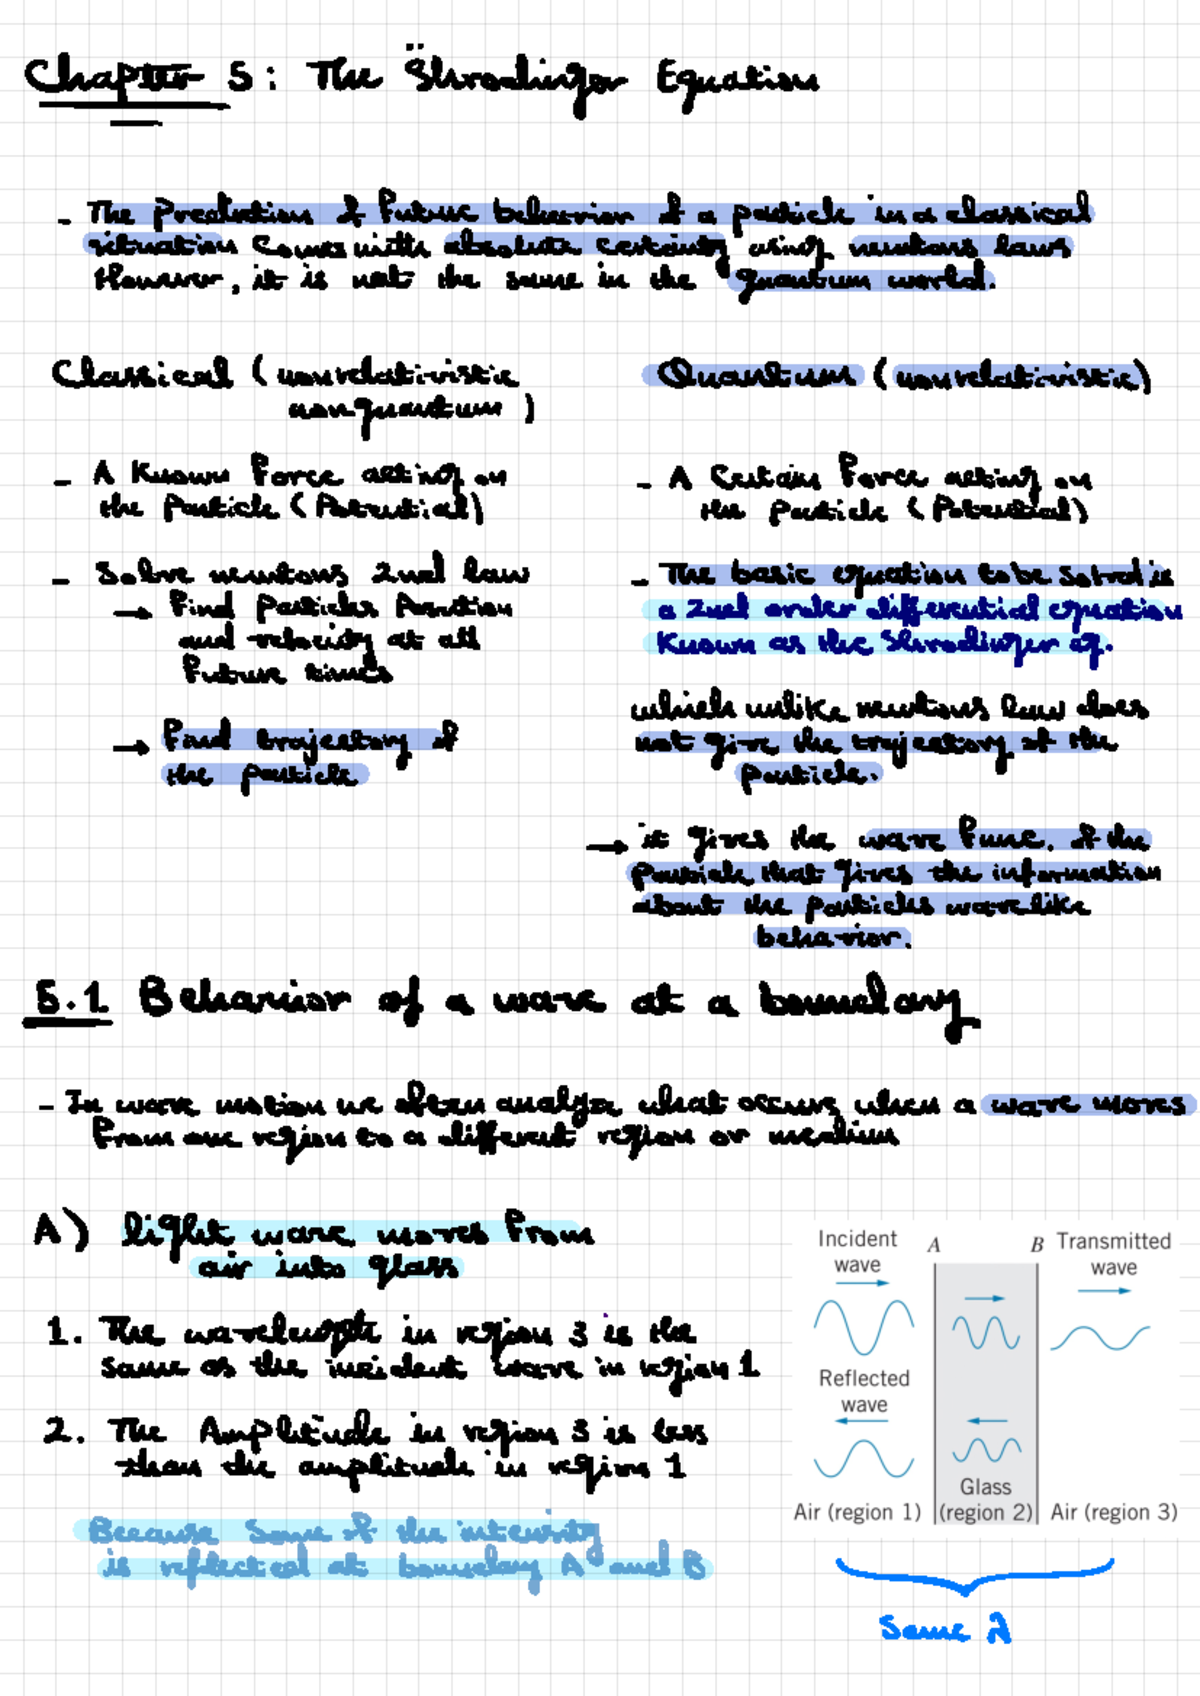 Chapter 5: The Shrodinger Equation
- The Prediction of Future behavior of a particle in a classical
situation comes with absolute certainty using newtons laws
However, it is not the same in the quantum world.
Classical (nonrelativistic
nonquantum)
- A Known Force acting on
the Particle (Potential)
- Solve newtons 2nd law
→ Find Particles Position
and velocity at all
Future times
→ Find trajectory of
the particle
Quantum (nonrelativistic)
- A Certain Force acting on
the Particle (Potential)
- The basic equation to be solved is
a 2nd order differential equation
Known as the Shrodinger eq.
which unlike newtons law does
not give the trajectory of the
particle.
→ it gives the wave Func. of the
Particle that gives the information
about the particles wavelike
behavior.
5.1 Behavior of a wave at a boundary
- In wave motion we often analyze what occurs when a wave moves
From one region to a different region or medium
A) light wave moves From
air into glass
1. The wavelength in region 3 is the
same as the incident wave in region 1
2. The Amplitude in region 3 is less
than the amplitude in region 1
Because Some of the intensity
is reflected at boundary A and B
Incident
wave
A
B
Transmitted
wave
Reflected
wave
Glass
Air (region 1)
(region 2)
Air (region 3)
Same λ